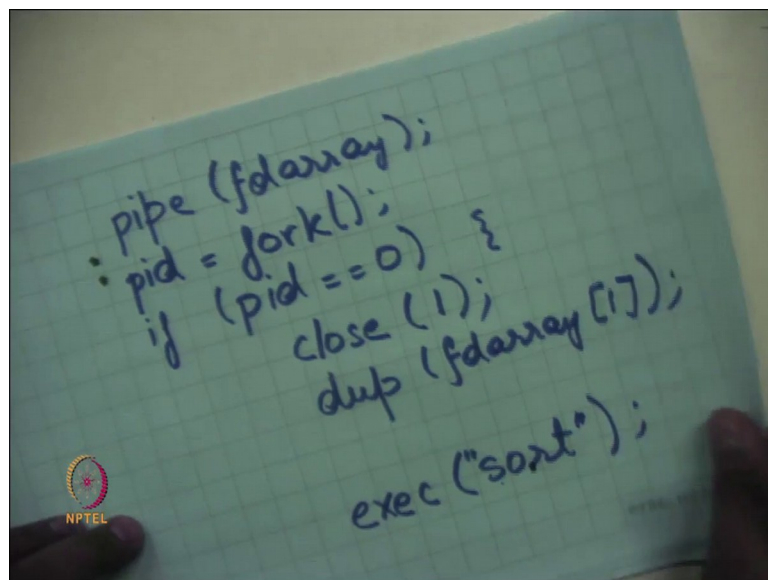 pipe (fdarray);
pid = fork();
if (pid == 0) {
close (1);
dup (fdarray [1]);
exec ("sort");
NPTEL